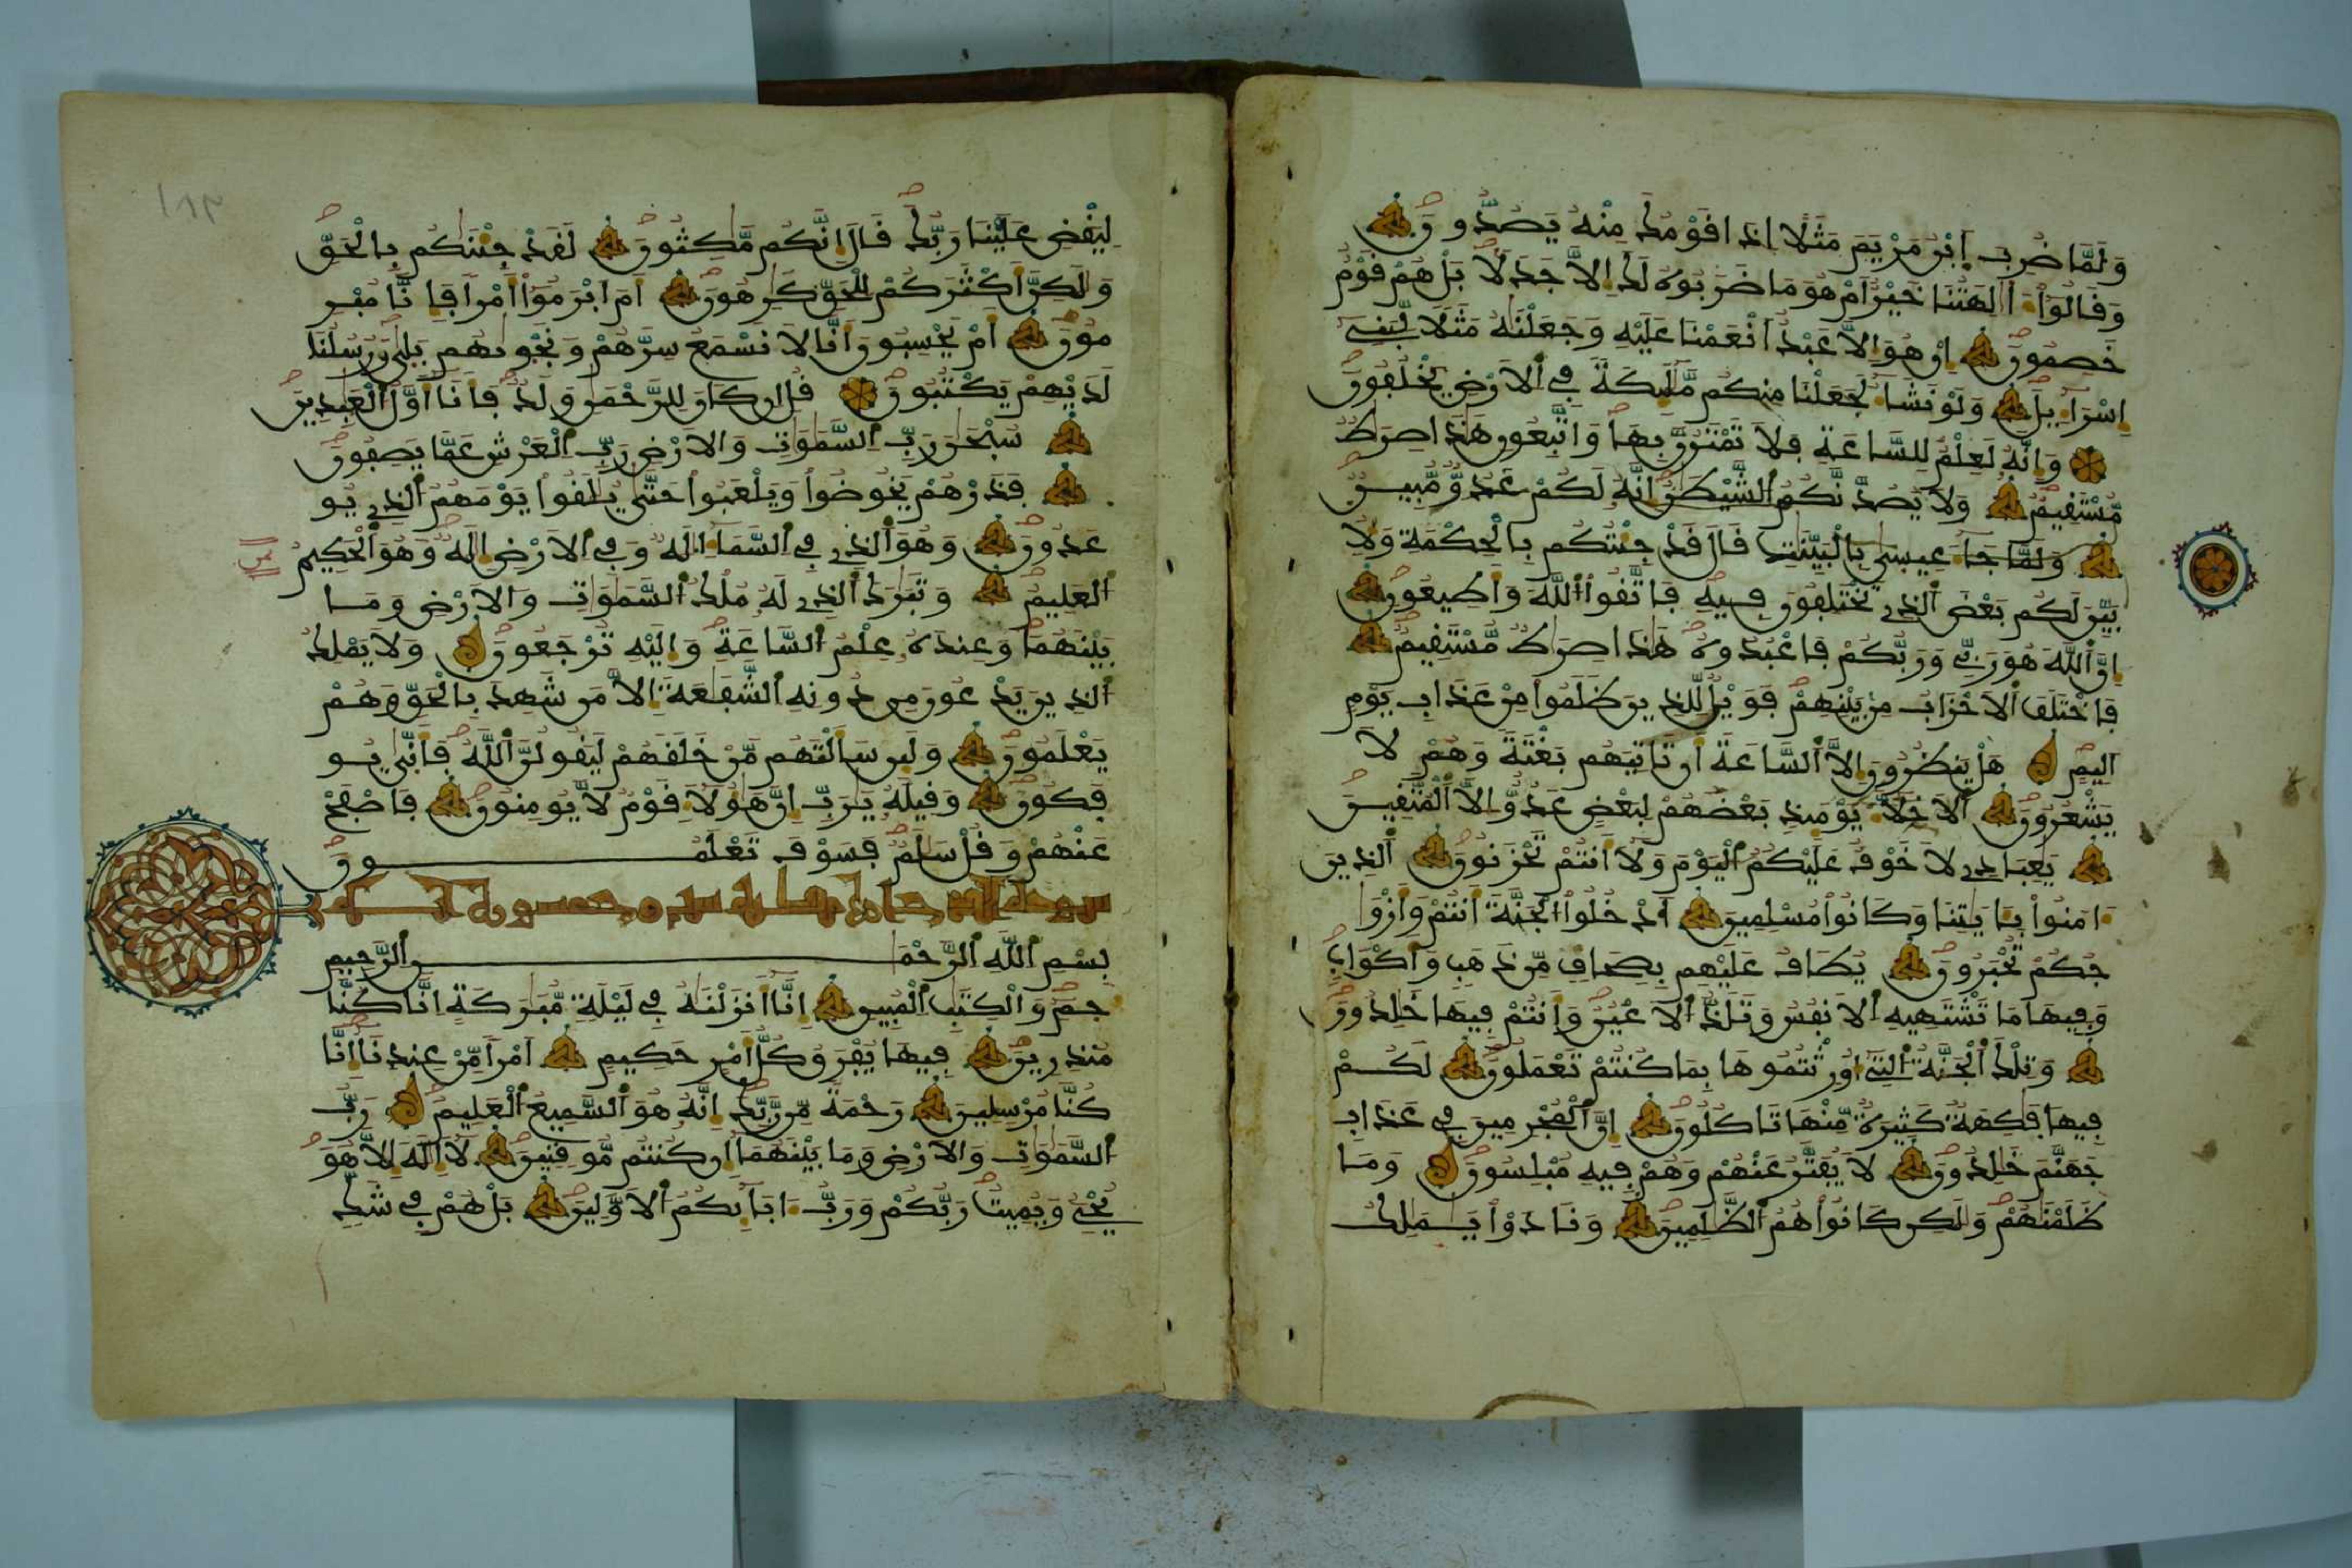 وَلَمَّا ضُرِبَ اَبْنُ مَرْيَمَ مَثَلًا اِذَا قَوْمُكَ مِنْهُ يَصُدُّونَ
وَقَالُوٓاْ ءَا۬لِهَتُنَا خَيْرٌ اَمْ هُوَ مَا ضَرَبُوهُ لَكَ إِلَّا جَدَلَا بَلْ هُمْ قَوْمٌ
خَصِمُونَ اِنْ هُوَ إِلَّا عَبْدٌ اَنْعَمْنَا عَلَيْهِ وَجَعَلْنَٰهُ مَثَلًا لِّبَنِےٓ
إِسْرَآءِيلَ وَلَوْ نَشَآءُ لَجَعَلْنَا مِنكُم مَّلَٰٓئِكَةً فِے اِ۬لَارْضِ يَخْلُفُونَ
وَإِنَّهُۥ لَعِلْمٌ لِّلسَّاعَةِ فَلَا تَمْتَرُنَّ بِهَا وَاتَّبِعُونِ هَٰذَا صِرَٰطٌ
مُّسْتَقِيمٌ وَلَا يَصُدَّنَّكُمُ اُ۬لشَّيْطَٰنُ إِنَّهُۥ لَكُمْ عَدُوٌّ مُّبِينٌ
وَلَمَّا جَآءَ عِيسَىٰ بِالْبَيِّنَٰتِ قَالَ قَدْ جِئْتُكُم بِالْحِكْمَةِ وَلِأُ
بَيِّنَ لَكُم بَعْضَ اَ۬لذِے تَخْتَلِفُونَ فِيهِ فَاتَّقُواْ اُ۬للَّهَ وَأَطِيعُونِ
إِنَّ اَ۬للَّهَ هُوَ رَبِّے وَرَبُّكُمْ فَاعْبُدُوهُ هَٰذَا صِرَٰطٌ مُّسْتَقِيمٌ
فَاخْتَلَفَ اَ۬لَاحْزَابُ مِنۢ بَيْنِهِمْ فَوَيْلٌ لِّلذِينَ ظَلَمُواْ مِنْ عَذَابِ يَوْمٍ
اَلِيمٍ هَلْ يَنظُرُونَ إِلَّا اَ۬لسَّاعَةَ أَن تَاتِيَهُم بَغْتَةً وَهُمْ لَا
يَشْعُرُونَ اَ۬لَاخِلَّآءُ يَوْمَئِذِۢ بَعْضُهُمْ لِبَعْضٍ عَدُوٌّ اِلَّا اَ۬لْمُتَّقِينَ
يَٰعِبَادِے لَا خَوْفٌ عَلَيْكُمُ اُ۬لْيَوْمَ وَلَآ أَنتُمْ تَحْزَنُونَ اَ۬لذِينَ
ءَامَنُواْ بِـَٔايَٰتِنَا وَكَانُواْ مُسْلِمِينَ اَ۟دْخُلُواْ اُ۬لْجَنَّةَ أَنتُمْ وَأَزْوَٰ
جُكُمْ تُحْبَرُونَ يُطَافُ عَلَيْهِم بِصِحَافٍ مِّن ذَهَبٍ وَأَكْوَابٍ
وَفِيهَا مَا تَشْتَهِيهِ اِ۬لَانفُسُ وَتَلَذُّ اُ۬لَاعْيُنُ وَأَنتُمْ فِيهَا خَٰلِدُونَ
وَتِلْكَ اَ۬لْجَنَّةُ اُ۬لتِےٓ أُورِثْتُمُوهَا بِمَا كُنتُمْ تَعْمَلُونَ لَكُمْ
فِيهَا فَٰكِهَةٌ كَثِيرَةٌ مِّنْهَا تَاكُلُونَ إِنَّ اَ۬لْمُجْرِمِينَ فِے عَذَابِ
جَهَنَّمَ خَٰلِدُونَ لَا يُفَتَّرُ عَنْهُمْ وَهُمْ فِيهِ مُبْلِسُونَ وَمَا
ظَلَمْنَٰهُمْ وَلَٰكِن كَانُواْ هُمُ اُ۬لظَّٰلِمِينَ وَنَادَوْاْ يَٰمَٰلِكُ
لِيَقْضِ عَلَيْنَا رَبُّكَ قَالَ إِنَّكُم مَّٰكِثُونَ لَقَدْ جِئْنَٰكُم بِالْحَقِّ
وَلَٰكِنَّ أَكْثَرَكُمْ لِلْحَقِّ كَٰرِهُونَ أَمَ اَبْرَمُوٓاْ أَمْراً فَإِنَّا مُبْرِ
مُونَ أَمْ يَحْسِبُونَ أَنَّا لَا نَسْمَعُ سِرَّهُمْ وَنَجْوَىٰهُم بَلَىٰ وَرُسُلُنَا
لَدَيْهِمْ يَكْتُبُونَ قُلِ اِن كَانَ لِلرَّحْمَٰنِ وَلَدٌ فَأَنَآ أَوَّلُ اُ۬لْعَٰبِدِينَ
سُبْحَٰنَ رَبِّ اِ۬لسَّمَٰوَٰتِ وَالَارْضِ رَبِّ اِ۬لْعَرْشِ عَمَّا يَصِفُونَ
فَذَرْهُمْ يَخُوضُواْ وَيَلْعَبُواْ حَتَّىٰ يُلَٰقُواْ يَوْمَهُمُ اُ۬لذِے يُو
عَدُونَ وَهُوَ اَ۬لذِے فِے اِ۬لسَّمَآءِ إِلَٰهٌ وَفِے اِ۬لَارْضِ إِلَٰهٌ وَهُوَ اَ۬لْحَكِيمُ
ثمن
اُ۬لْعَلِيمُ وَتَبَٰرَكَ اَ۬لذِے لَهُۥ مُلْكُ اُ۬لسَّمَٰوَٰتِ وَالَارْضِ وَمَا
بَيْنَهُمَا وَعِندَهُۥ عِلْمُ اُ۬لسَّاعَةِ وَإِلَيْهِ تُرْجَعُونَ وَلَا يَمْلِكُ
اُ۬لذِينَ يَدْعُونَ مِن دُونِهِ اِ۬لشَّفَٰعَةَ إِلَّا مَن شَهِدَ بِالْحَقِّ وَهُمْ
يَعْلَمُونَ وَلَئِن سَأَلْتَهُم مَّنْ خَلَقَهُمْ لَيَقُولُنَّ اَ۬للَّهُ فَأَنَّىٰ يُو
فَكُونَ وَقِيلَهُۥ يَٰرَبِّ إِنَّ هَٰٓؤُلَآءِ قَوْمٌ لَّا يُومِنُونَ فَاصْفَحْ
عَنْهُمْ وَقُلْ سَلَٰمٌ فَسَوْفَ تَعْلَمُونَ
بِسْمِ اِ۬للَّهِ اِ۬لرَّحْمَٰنِ اِ۬لرَّحِيمِ
حمٓ وَالْكِتَٰبِ اِ۬لْمُبِينِ إِنَّآ أَنزَلْنَٰهُ فِے لَيْلَةٍ مُّبَٰرَكَةٍ اِنَّا كُنَّا
مُنذِرِينَ فِيهَا يُفْرَقُ كُلُّ أَمْرٍ حَكِيمٍ اَمْراً مِّنْ عِندِنَآ إِنَّا
كُنَّا مُرْسِلِينَ رَحْمَةً مِّن رَّبِّكَ إِنَّهُۥ هُوَ اَ۬لسَّمِيعُ اُ۬لْعَلِيمُ رَبُّ
اُ۬لسَّمَٰوَٰتِ وَالَارْضِ وَمَا بَيْنَهُمَآ إِن كُنتُم مُّوقِنِينَ لَآ إِلَٰهَ إِلَّا هُوَ
يُحْيِۦ وَيُمِيتُ رَبُّكُمْ وَرَبُّ ءَابَآئِكُمُ اُ۬لَاوَّلِينَ بَلْ هُمْ فِے شَكٍّ